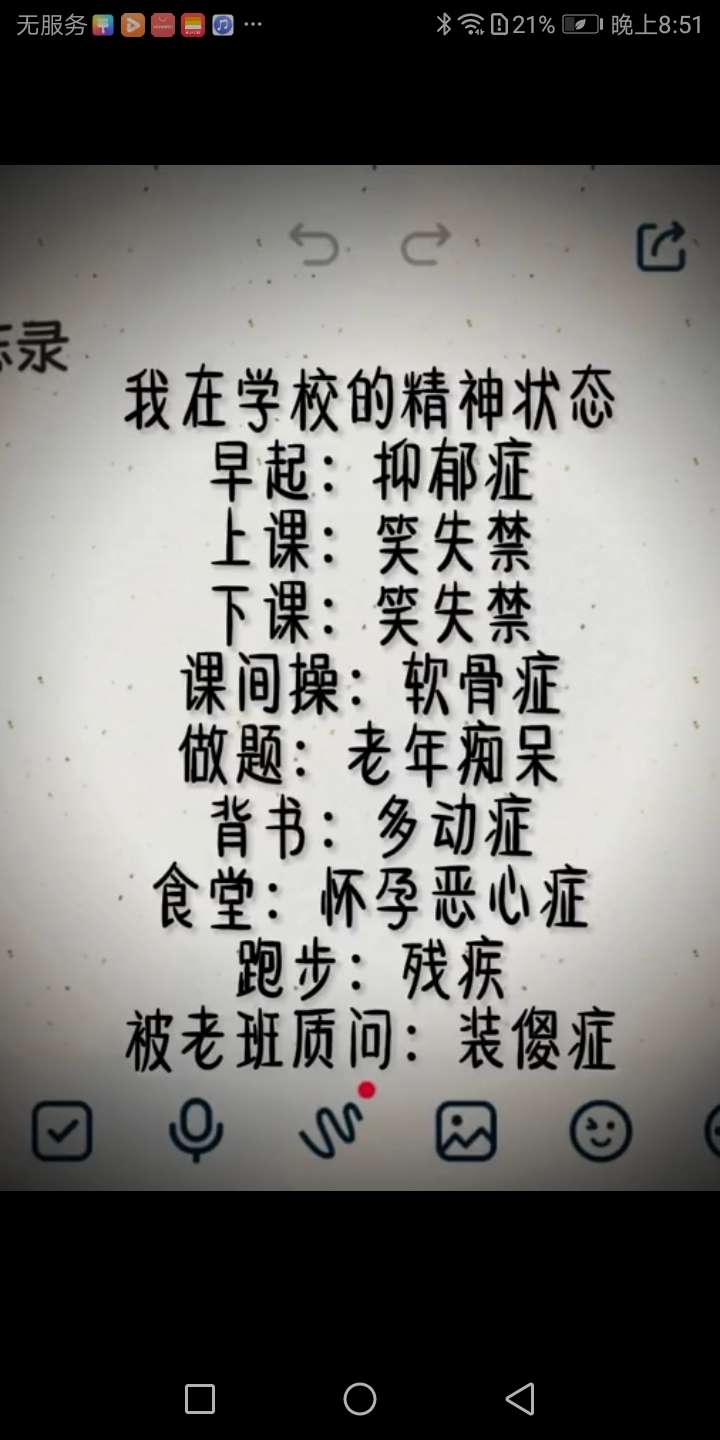 无服务 21% 晚上8:51
录
我在学校的精神状态
早起：抑郁症
上课：笑失禁
下课：笑失禁
课间操：软骨症
做题：老年痴呆
背书：多动症
食堂：怀孕恶心症
跑步：残疾
被老班质问：装傻症